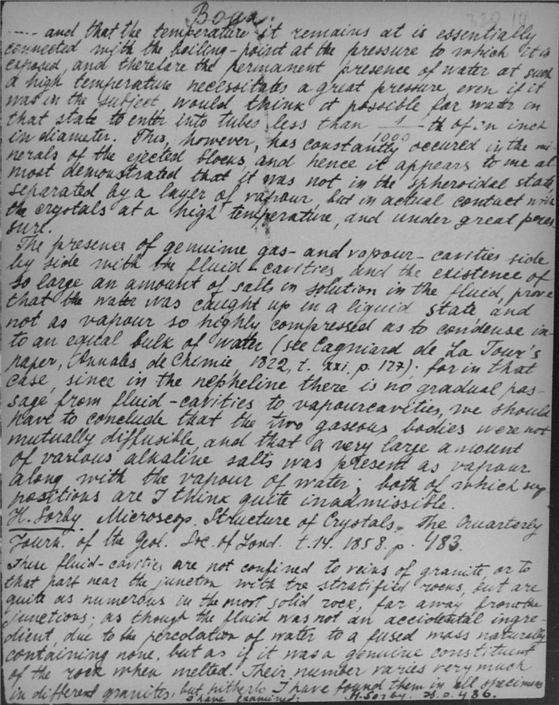 Вода.
..... and that the temperature it remains at is essentially
connected with the boiling-point at the pressure to which it is
exposed, and therefore the permanent presence of water at such
a high temperature necessitates a great pressure, even if it
was in the subject, would think it possible for water in
that state to enter into tubes less than 1/1000-th of in inch
in diameter. This, however, has constantly occured in the mi-
nerals of the ejected blocus, and hence it appears to me al-
most demonstrated that it was not in the spheroidal state,
separated by a layer of vapour, but in actual contact with
the crystals at a high temperature, and under great pres-
sure.
The presence of genuine gas- and vapour-cavities side
by side with the fluid-cavities and the existence of
so large an amount of salts in solution in the fluid, prove
that the water was caught up in a liquid state and
not as vapour so highly compressed as to condense in-
to an equal bulk of water (see Cagniard de La Tour's
paper, Annales de Chimie 1822, t. XXI, p. 127); for in that
case, since in the nepheline there is no gradual pas-
sage from fluid-cavities to vapourcavities, we should
have to conclude that the two gaseous bodies were not
mutually diffusible, and that a very large amount
of various alkaline salts was present as vapour
along with the vapour of water; both of which sup-
positions are I think quite inadmissible.
H. Sorby Microscop. Structure of Crystals. The Quarterly
Journ. of the Geol. Soc. of Lond. t. 14. 1858. p. 483.
These fluid-cavities are not confined to veins of granite, or to
that part near the junction with the stratified rocks, but are
quite as numerous in the most solid rock, far away from the
junctions; as though the fluid was not an accidental ingre-
dient, due to the percolation of water to a fused mass naturally
containing none, but as if it was a genuine constituent
of the rock when melted. Their number varies very much
in different granites, but hitherto I have found them in all specimens
I have examined. H. Sorby. p. 486.